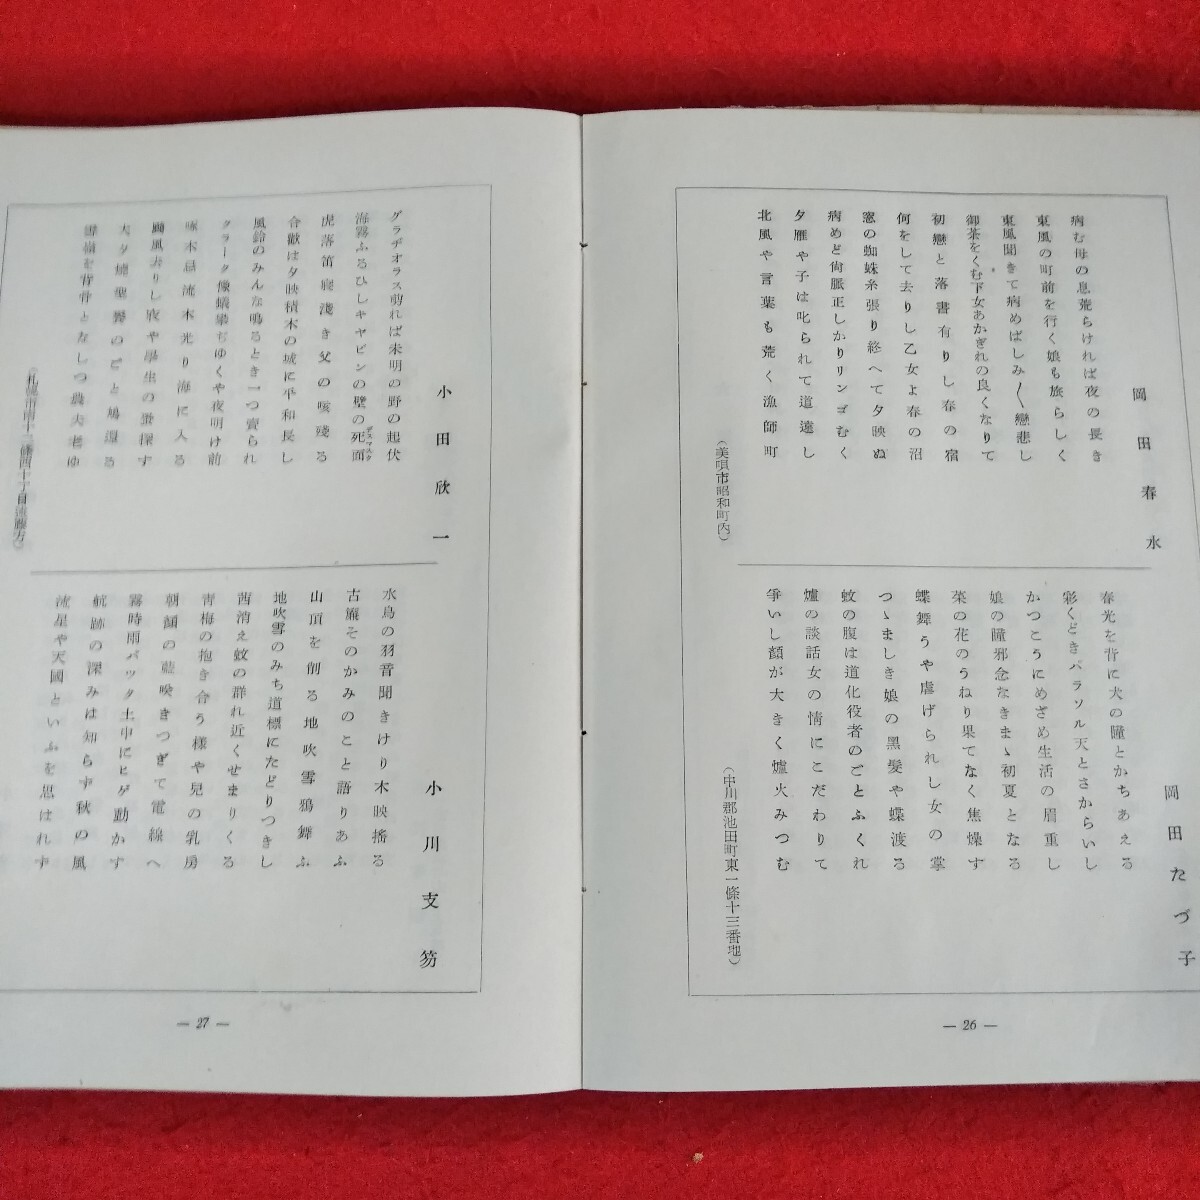 岡田春水
病む母の息荒らければ夜の長き
東風の町前を行く娘も旅らしく
東風聞きて病めばしみ〱戀悲し
御茶をくむ下女あかぎれの良くなりて
初戀と落書有りし春の宿
何をして去りし乙女よ春の沼
窓の蜘蛛糸張り終へて夕映ぬ
病めど尙脈正しかりリンゴむく
夕雁や子は叱られて道遠し
北風や言葉も荒く漁師町
（美唄市昭和町内）
岡田たづ子
春光を背に犬の瞳とかちあえる
彩くどきパラソル天とさからいし
かつこうにめざめ生活の眉重し
娘の瞳邪念なきまゝ初夏となる
菜の花のうねり果てなく焦燥す
蝶舞うや虐げられし女の掌
つゝましき娘の黑髮や蝶渡る
蚊の腹は道化役者のごとふくれ
爐の談話女の情にこだわりて
爭いし顏が大きく爐火みつむ
（中川郡池田町東一條十三番地）
— 26 —
小田欣一
グラヂオラス剪れば未明の野の起伏
海霧ふるひしキヤビンの壁の死面
デスマスク
虎落笛寢淺き父の咳殘る
合歡は夕映積木の城に平和長し
風鈴のみんな鳴るとき一つ賣られ
クラーク像蟻攀ぢゆくや夜明け前
啄木忌流木光り海に入る
颱風去りし夜や學生の蚤探す
大夕燒聖鬱のごと鳩還る
を背骨となしつ農夫老ゆ
小川支笏
水鳥の羽音聞きけり木映搖る
古簾そのかみのこと語りあふ
山頂を削る地吹雪鴉舞ふ
地吹雪のみち道標にたどりつきし
茜消え蚊の群れ近くせまりくる
靑梅の抱き合う樣や兒の乳房
朝顏の藍喚きつぎて電線へ
霧時雨バツタ土中にヒゲ動かす
航跡の深みは知らず秋の風
流星や天國といふを思はれず
— 27 —